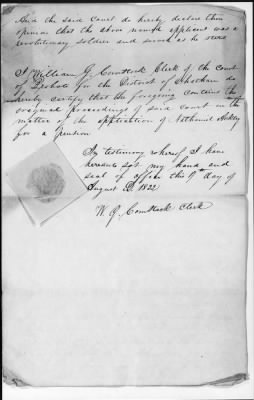 And the said Court do hereby declare their
opinion that the above named applicant was a
revolutionary soldier and served as he states
I William G. Comstock Clerk of the Court
of Probate for the District of Chatham do
hereby certify that the foregoing contains the
original proceedings of said Court in the
matter of the application of Nathaniel Ackley
for a pension
In testimony whereof I have
hereunto set my hand and
seal of office this 9th day of
August 1832
W. G. Comstock Clerk